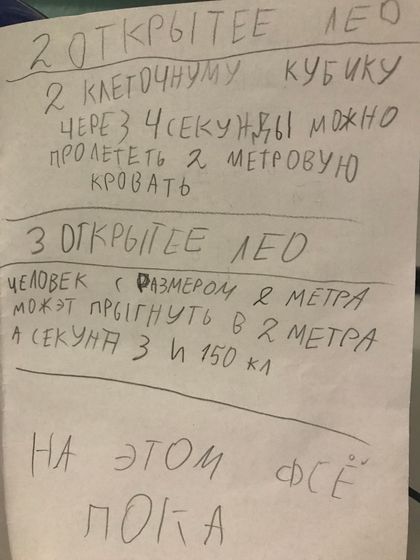 2 ОТКРЫТЕЕ ЛЕО
2 КЛЕТОЧНУМУ КУБИКУ
ЧЕРЕЗ 4 СЕКУНДЫ МОЖНО
ПРОЛЕТЕТЬ 2 МЕТРОВУЮ
КРОВАТЬ
3 ОТКРЫТЕЕ ЛЕО
ЧЕЛОВЕК С РАЗМЕРОМ 2 МЕТРА
МОЖЭТ ПРЫГНУТЬ В 2 МЕТРА
А СЕКУНД 3 И 150 КЛ
НА ЭТОМ ФСЁ
ПОКА